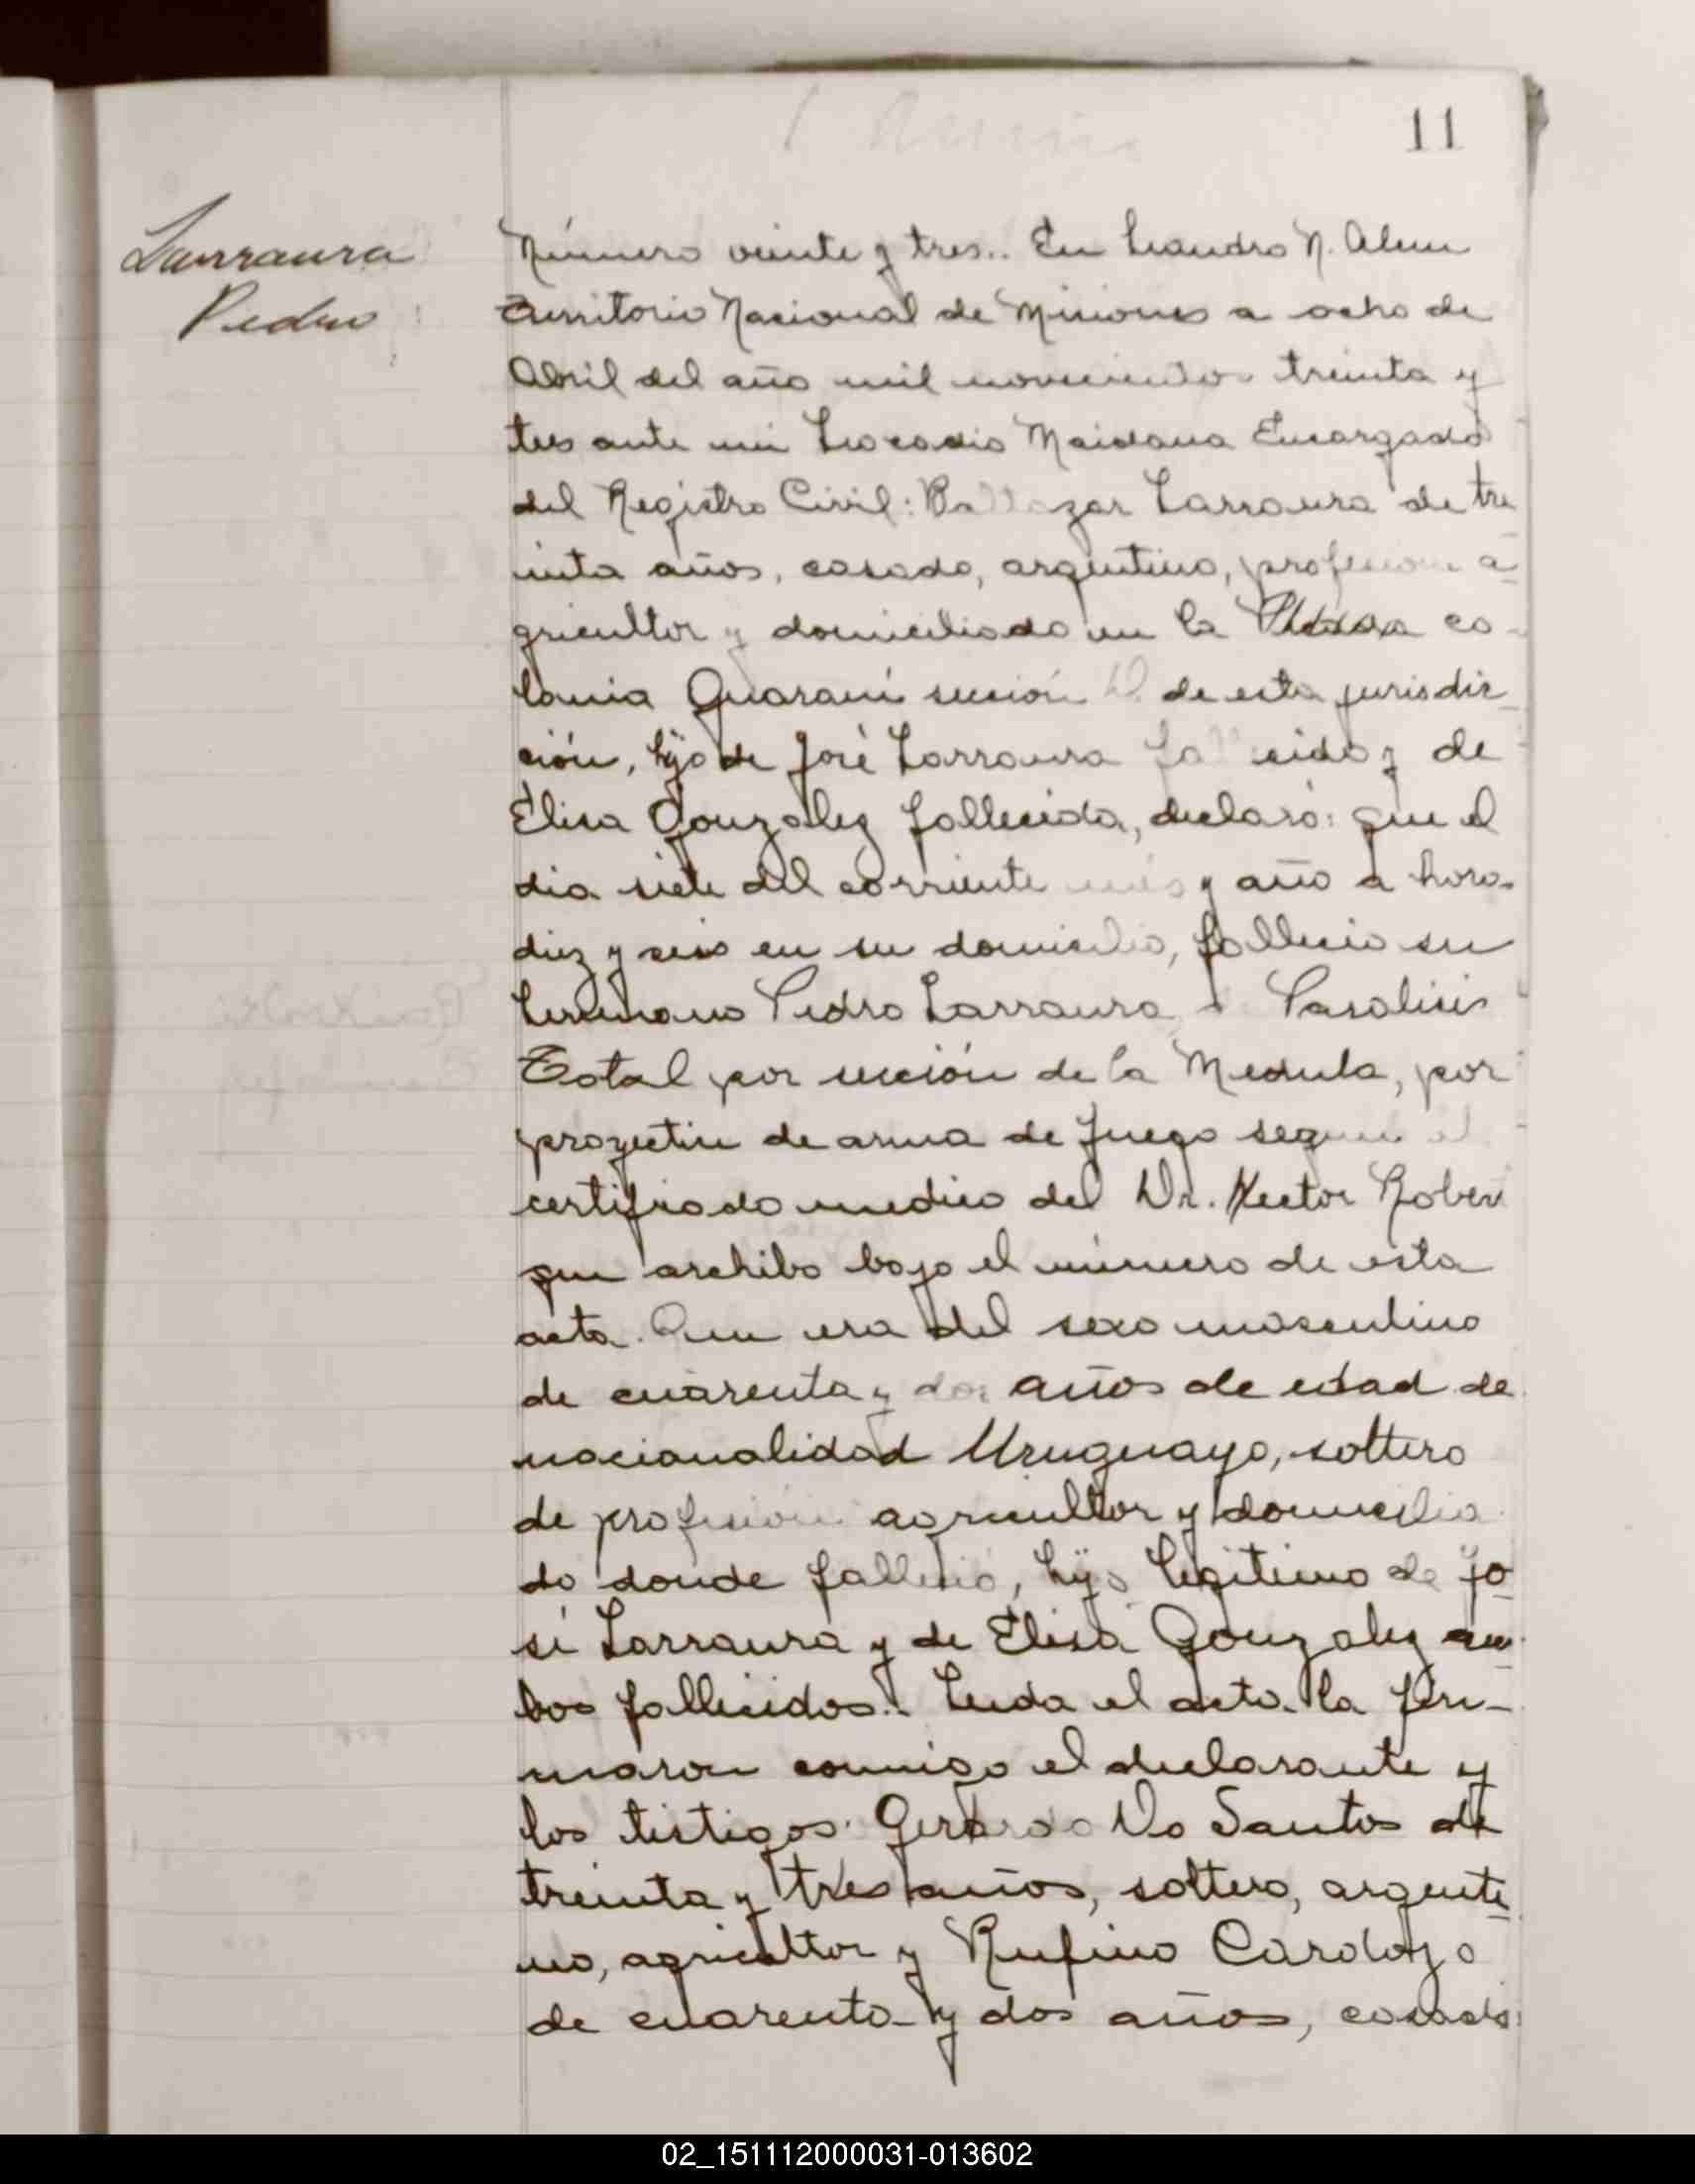 11
Larraura
Pedro
Número veinte y tres.. En Leandro N. Alem
Territorio Nacional de Misiones a ocho de
Abril del año mil novecientos treinta y
tres ante mi Leocadio Maidana Encargado
del Registro Civil: Baltazar Larraura de tre
inta años, casado, argentino, profesion a-
gricultor y domiciliado en la co-
lonia Guaraní sección D. de esta jurisdic-
ción, hijo de José Larraura fallecido y de
Elisa Gonzalez fallecida, declaró: que el
dia siete del corriente més y año a horas
diez y seis en su domicilio, fallecio su
hermano Pedro Larraura de Paralisis
Total por sección de la Medula, por
proyectil de arma de fuego segun el
certificado medico del Dr. Hector Rober
que archibo bajo el número de esta
acta. Que era del sexo masculino
de cuarenta y dos años de edad de
nacionalidad Uruguayo, soltero
de profesión agricultor y domicilia
do donde falleció, hijo legitimo de Jo-
sé Larraura y de Elisa Gonzalez am-
bos fallecidos.. Leida el acta la fir-
maron conmigo el declarante y
los testigos: Gerardo Do Santos de
treinta y tres años, soltero, argenti-
no, agricultor y Rufino Cardozo
de cuarenta y dos años, casado
02_151112000031-013602